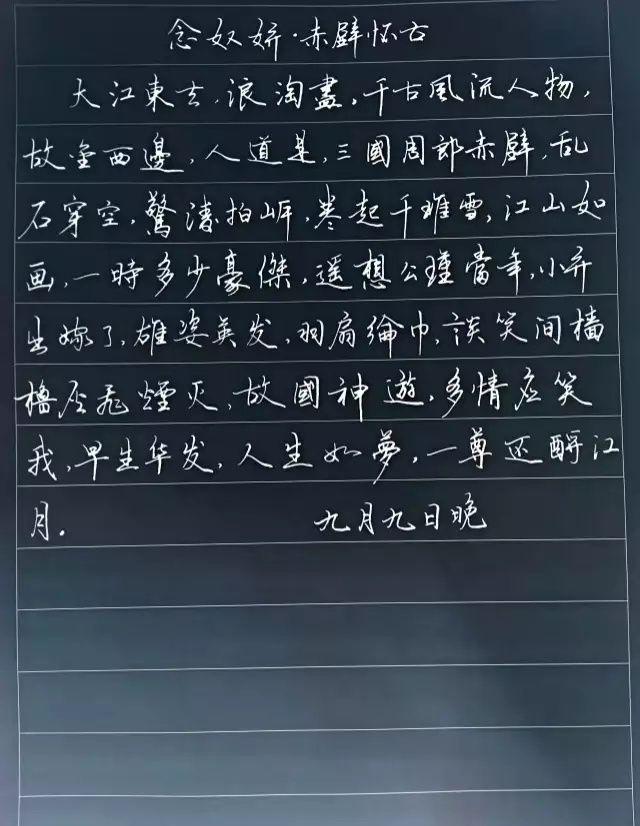 念奴娇·赤壁怀古
大江東去,浪淘盡,千古風流人物,
故垒西邊,人道是,三國周郎赤壁,乱
石穿空,驚濤拍岸,卷起千堆雪,江山如
画,一時多少豪傑,遥想公瑾當年,小乔
出嫁了,雄姿英发,羽扇綸巾,談笑间檣
櫓灰飛煙灭,故國神遊,多情应笑
我,早生华发,人生如夢,一尊还酹江
月。 九月九日晚